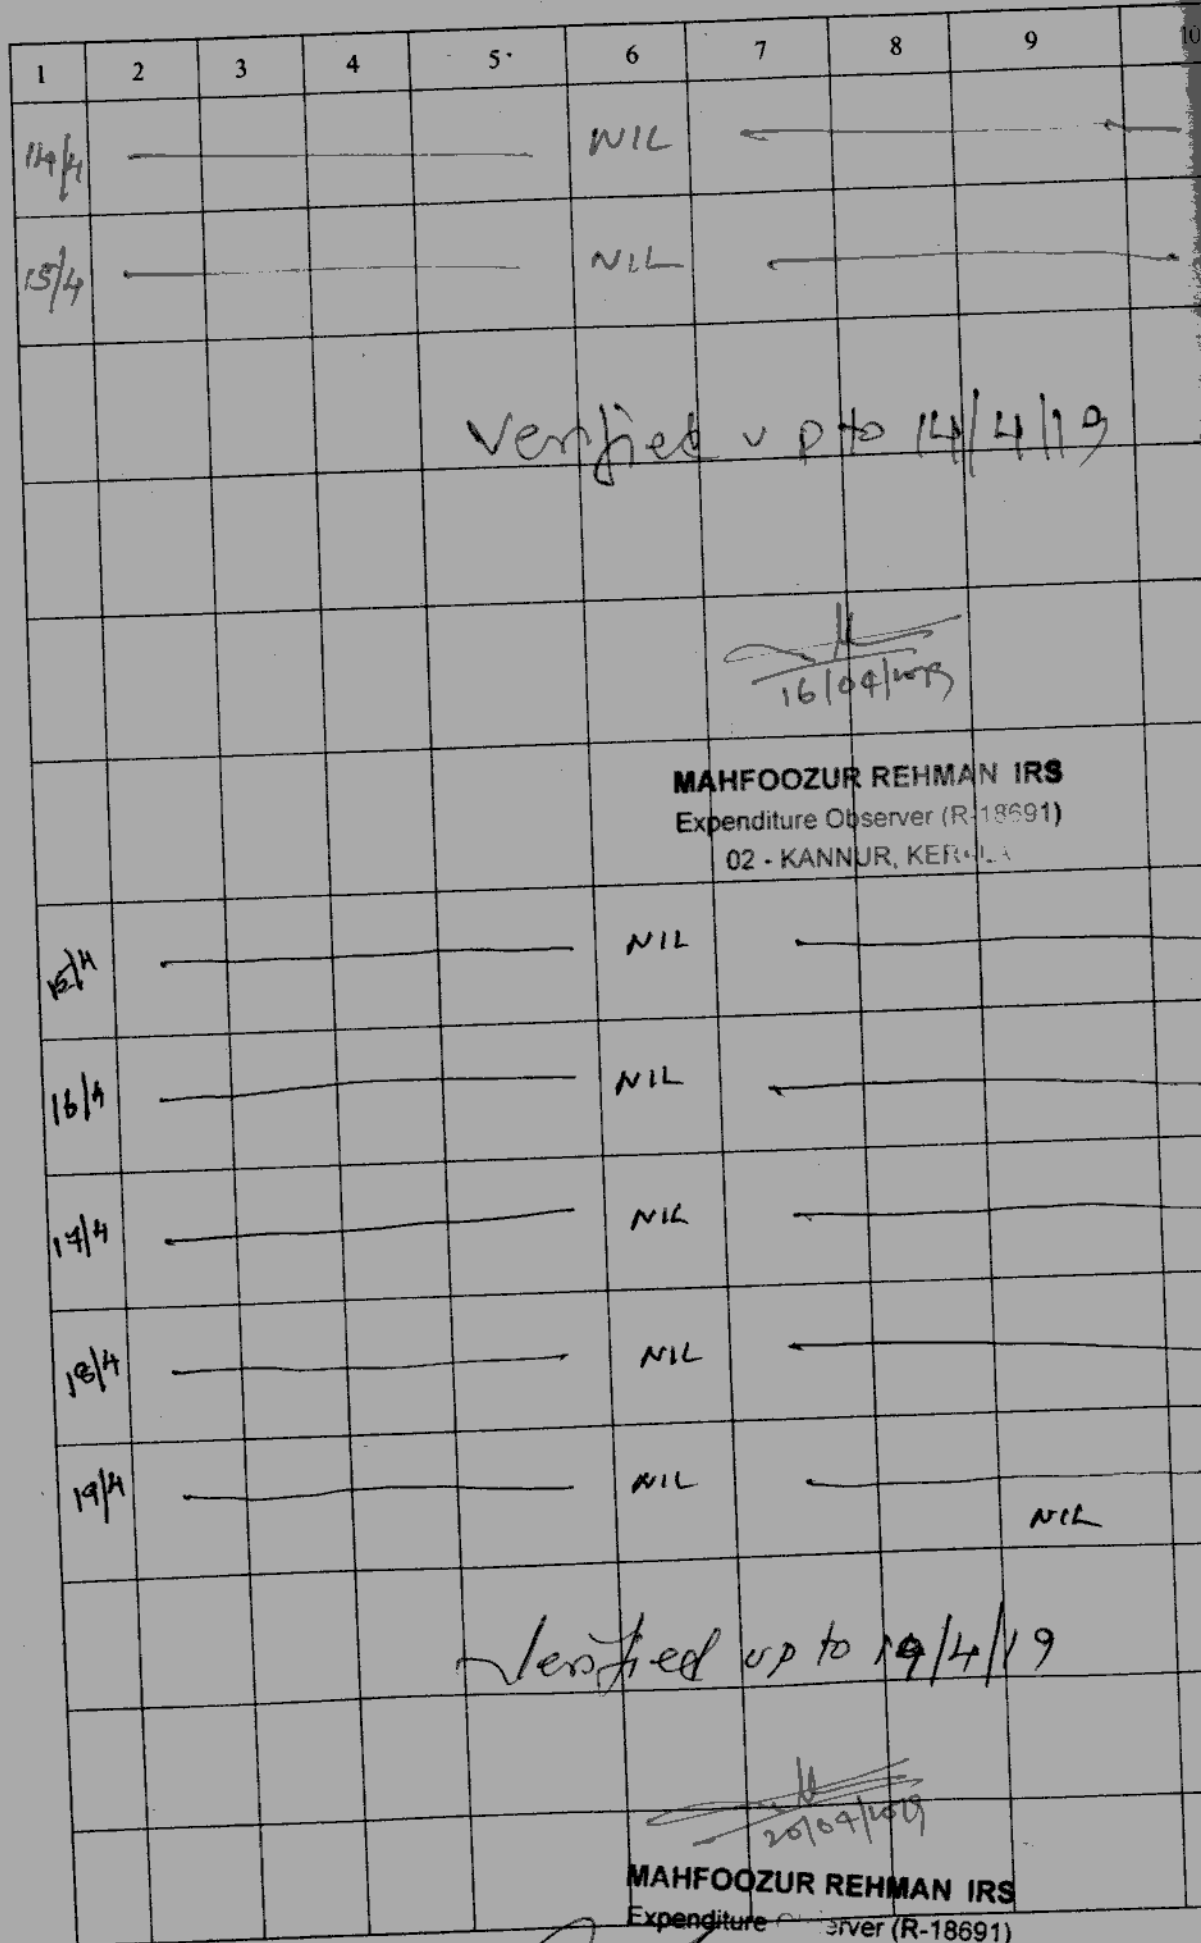 1 2 3 4 5. 6 7 8 9 10
14/4 NIL
15/4 NIL
Verified up to 14/4/19
16/04/2019
MAHFOOZUR REHMAN IRS
Expenditure Observer (R-18691)
02 - KANNUR, KERALA
15/4 NIL
16/4 NIL
17/4 NIL
18/4 NIL
19/4 NIL
NIL
Verified up to 19/4/19
20/04/2019
MAHFOOZUR REHMAN IRS
Expenditure Observer (R-18691)